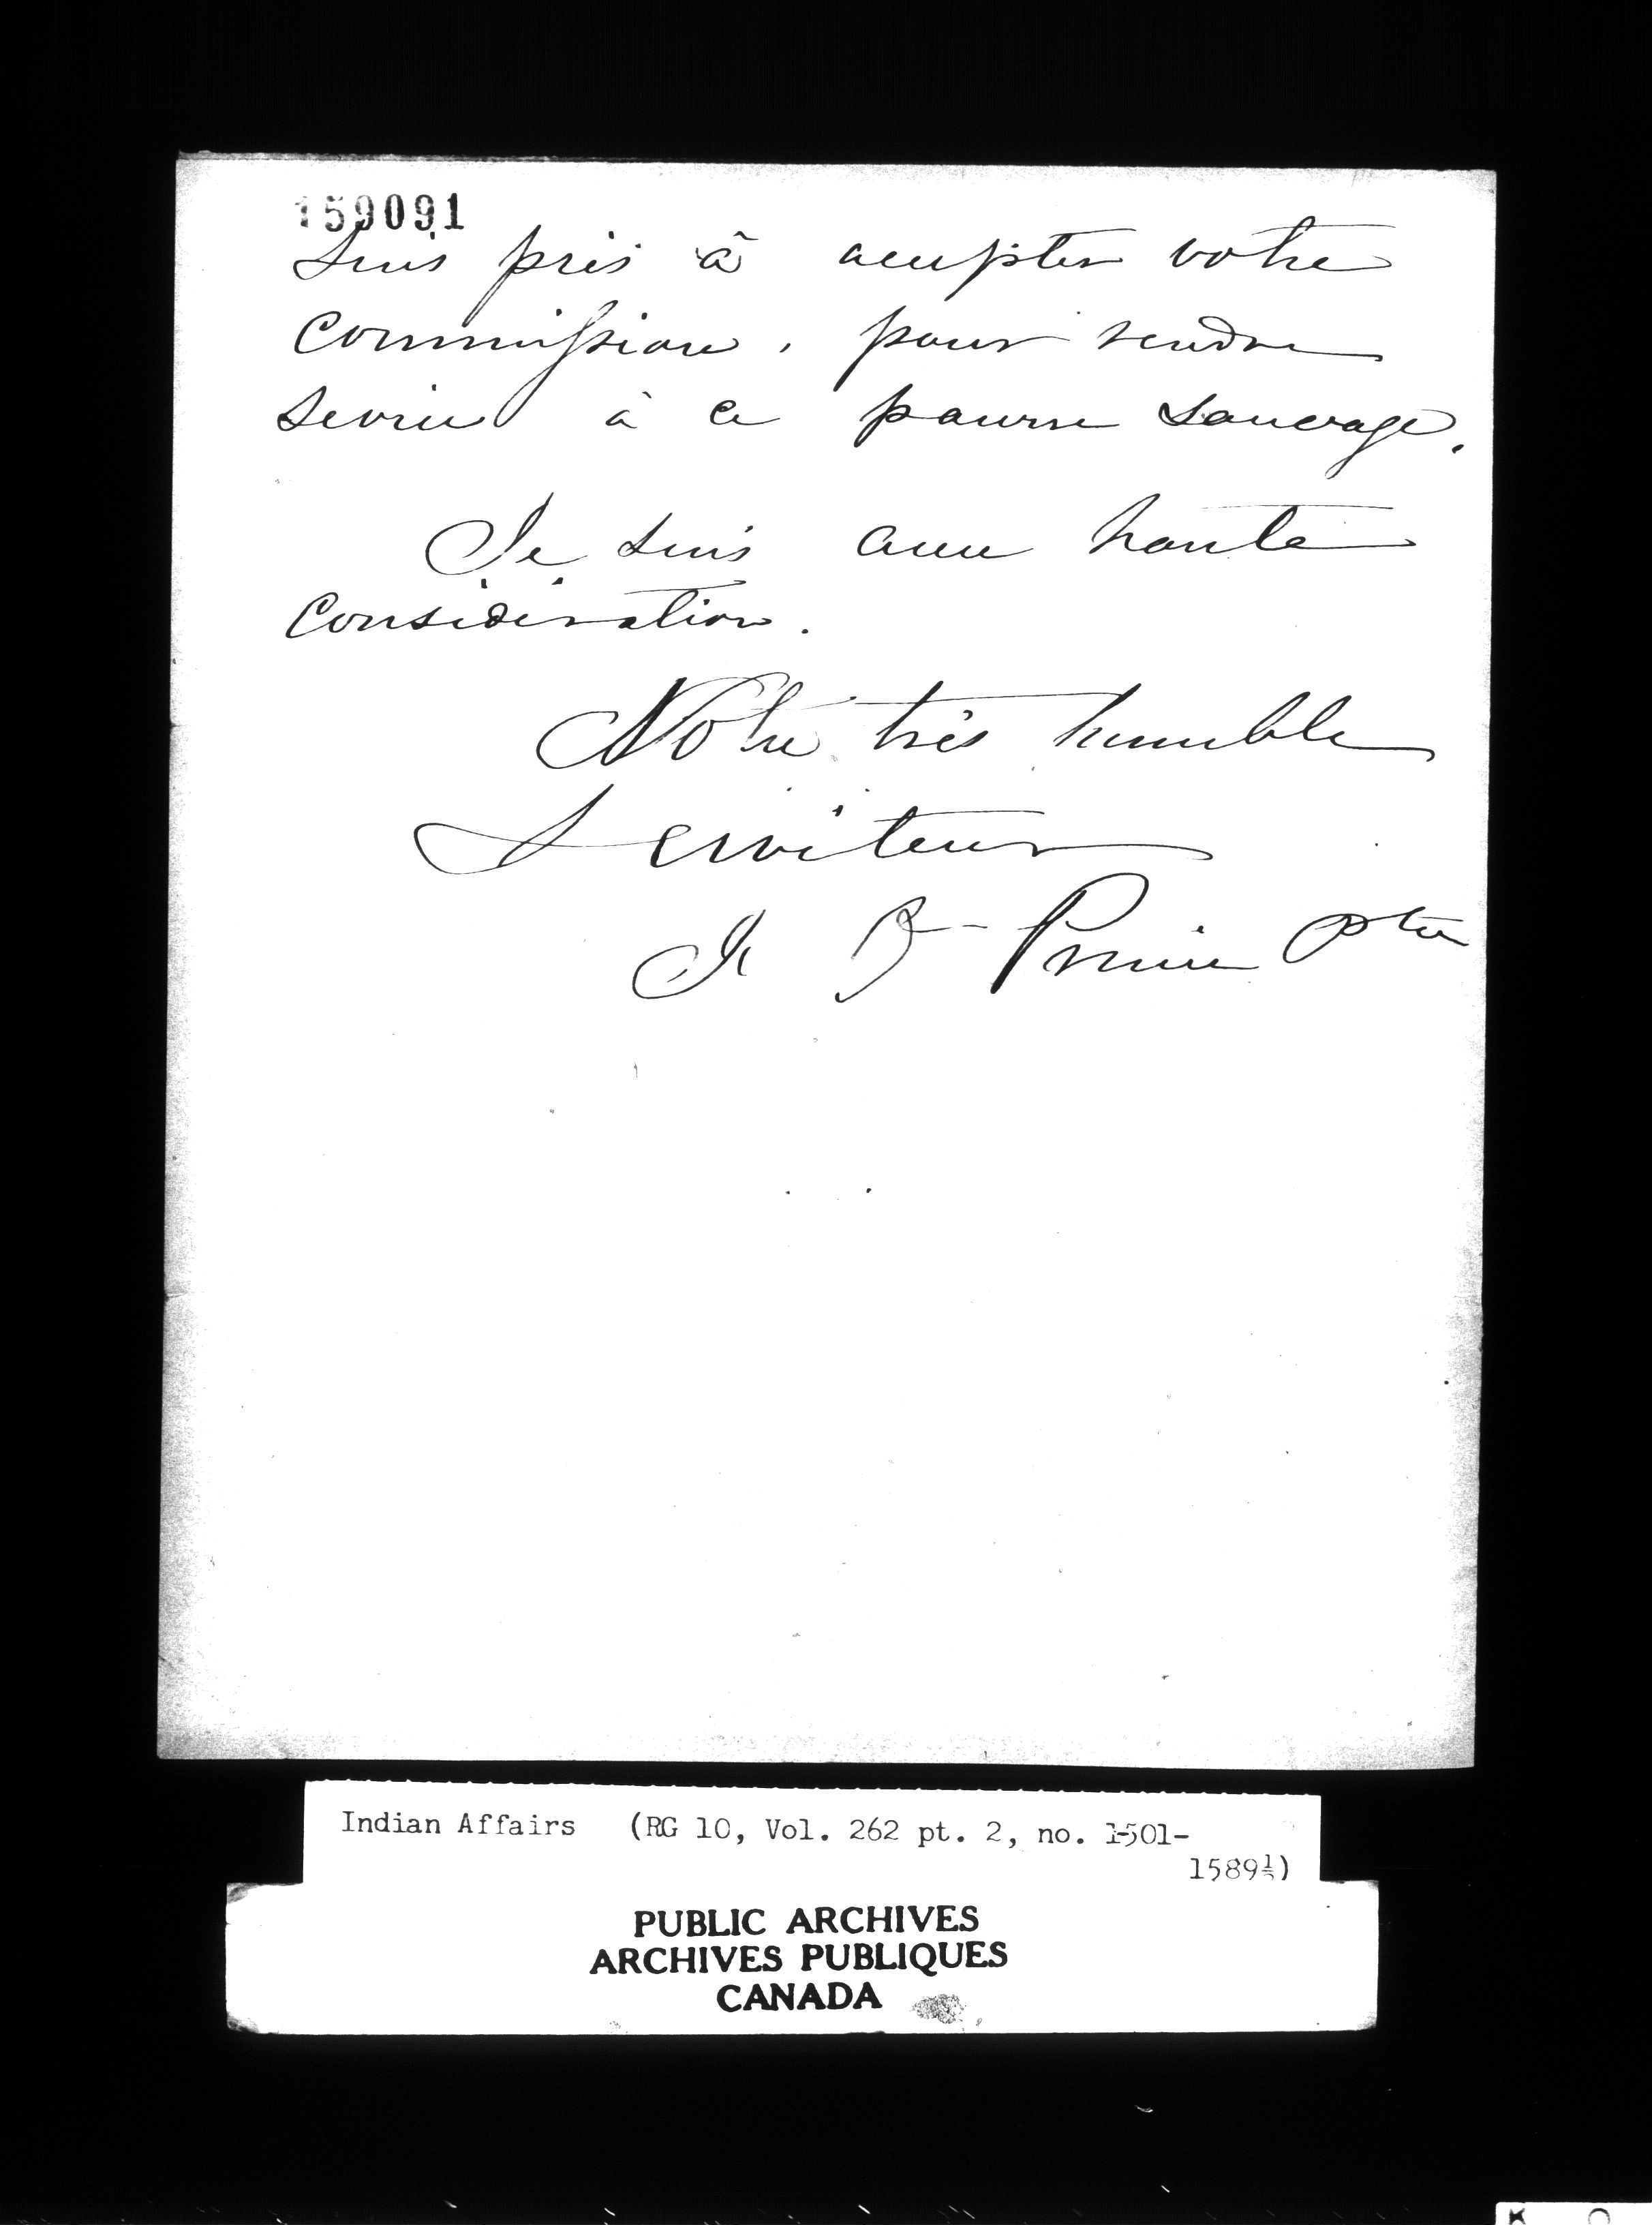 159091
suis près à accepter votre
commission, pour rendre
service à ce pauvre sauvage.
Je suis avec haute
considération.
Votre très humble
serviteur
J Bte Proulx Ptre
Indian Affairs (RG 10, Vol. 262 pt. 2, no. 1501-
1589½)
PUBLIC ARCHIVES
ARCHIVES PUBLIQUES
CANADA